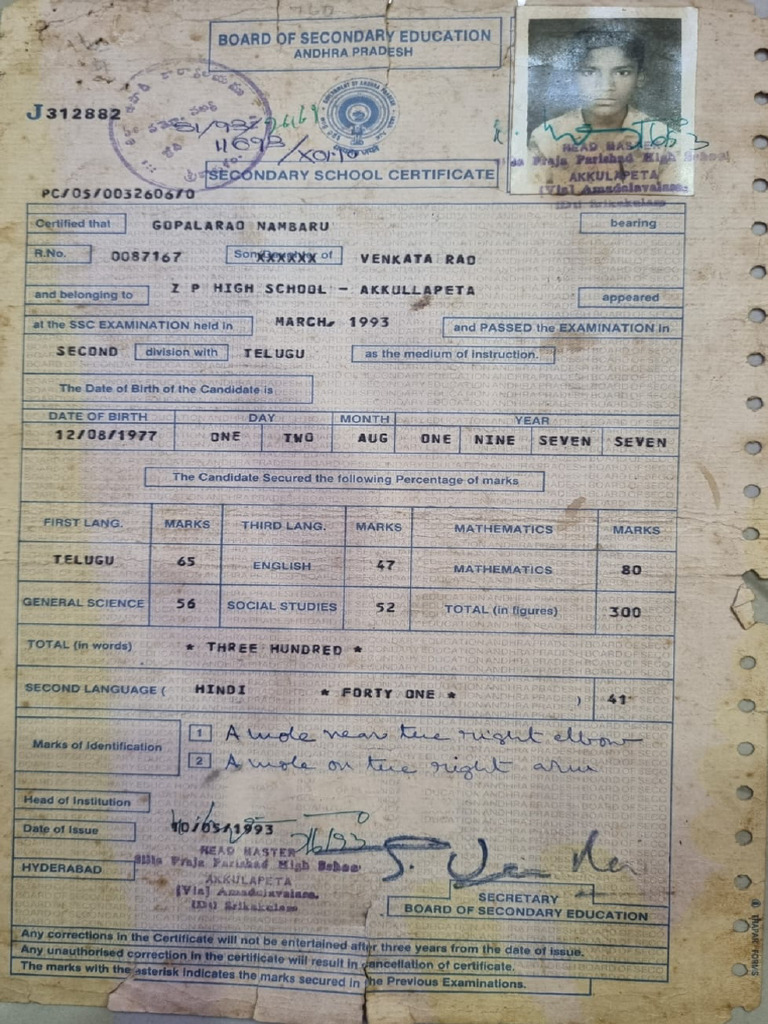 BOARD OF SECONDARY EDUCATION
ANDHRA PRADESH
J312882
SECONDARY SCHOOL CERTIFICATE
HEAD MASTER
Praja Parishad High School
AKKULAPETA
(Via) Amadalavalasa.
(Dt) Srikakulam
PC/05/0032606/0
Certified that GOPALARAO NAMBARU bearing
R.No. 0087167 Son/Daughter of VENKATA RAO
and belonging to Z P HIGH SCHOOL - AKKULLAPETA appeared
at the SSC EXAMINATION held in MARCH, 1993 and PASSED the EXAMINATION in
SECOND division with TELUGU as the medium of instruction.
The Date of Birth of the Candidate is
DATE OF BIRTH DAY MONTH YEAR
12/08/1977 ONE TWO AUG ONE NINE SEVEN SEVEN
The Candidate Secured the following Percentage of marks
FIRST LANG. MARKS THIRD LANG. MARKS MATHEMATICS MARKS
TELUGU 65 ENGLISH 47 MATHEMATICS 80
GENERAL SCIENCE 56 SOCIAL STUDIES 52 TOTAL (in figures) 300
TOTAL (in words) * THREE HUNDRED *
SECOND LANGUAGE ( HINDI * FORTY ONE * ) 41
Marks of Identification
1 A mole near the right elbow
2 A mole on the right arm
Head of Institution
Date of Issue 10/05/1993
HYDERABAD
HEAD MASTER
Zilla Praja Parishad High School
AKKULAPETA
(Via) Amadalavalasa.
(Dt) Srikakulam
SECRETARY
BOARD OF SECONDARY EDUCATION
Any corrections in the Certificate will not be entertained after three years from the date of issue.
Any unauthorised correction in the certificate will result in cancellation of certificate.
The marks with the asterisk indicates the marks secured in the Previous Examinations.